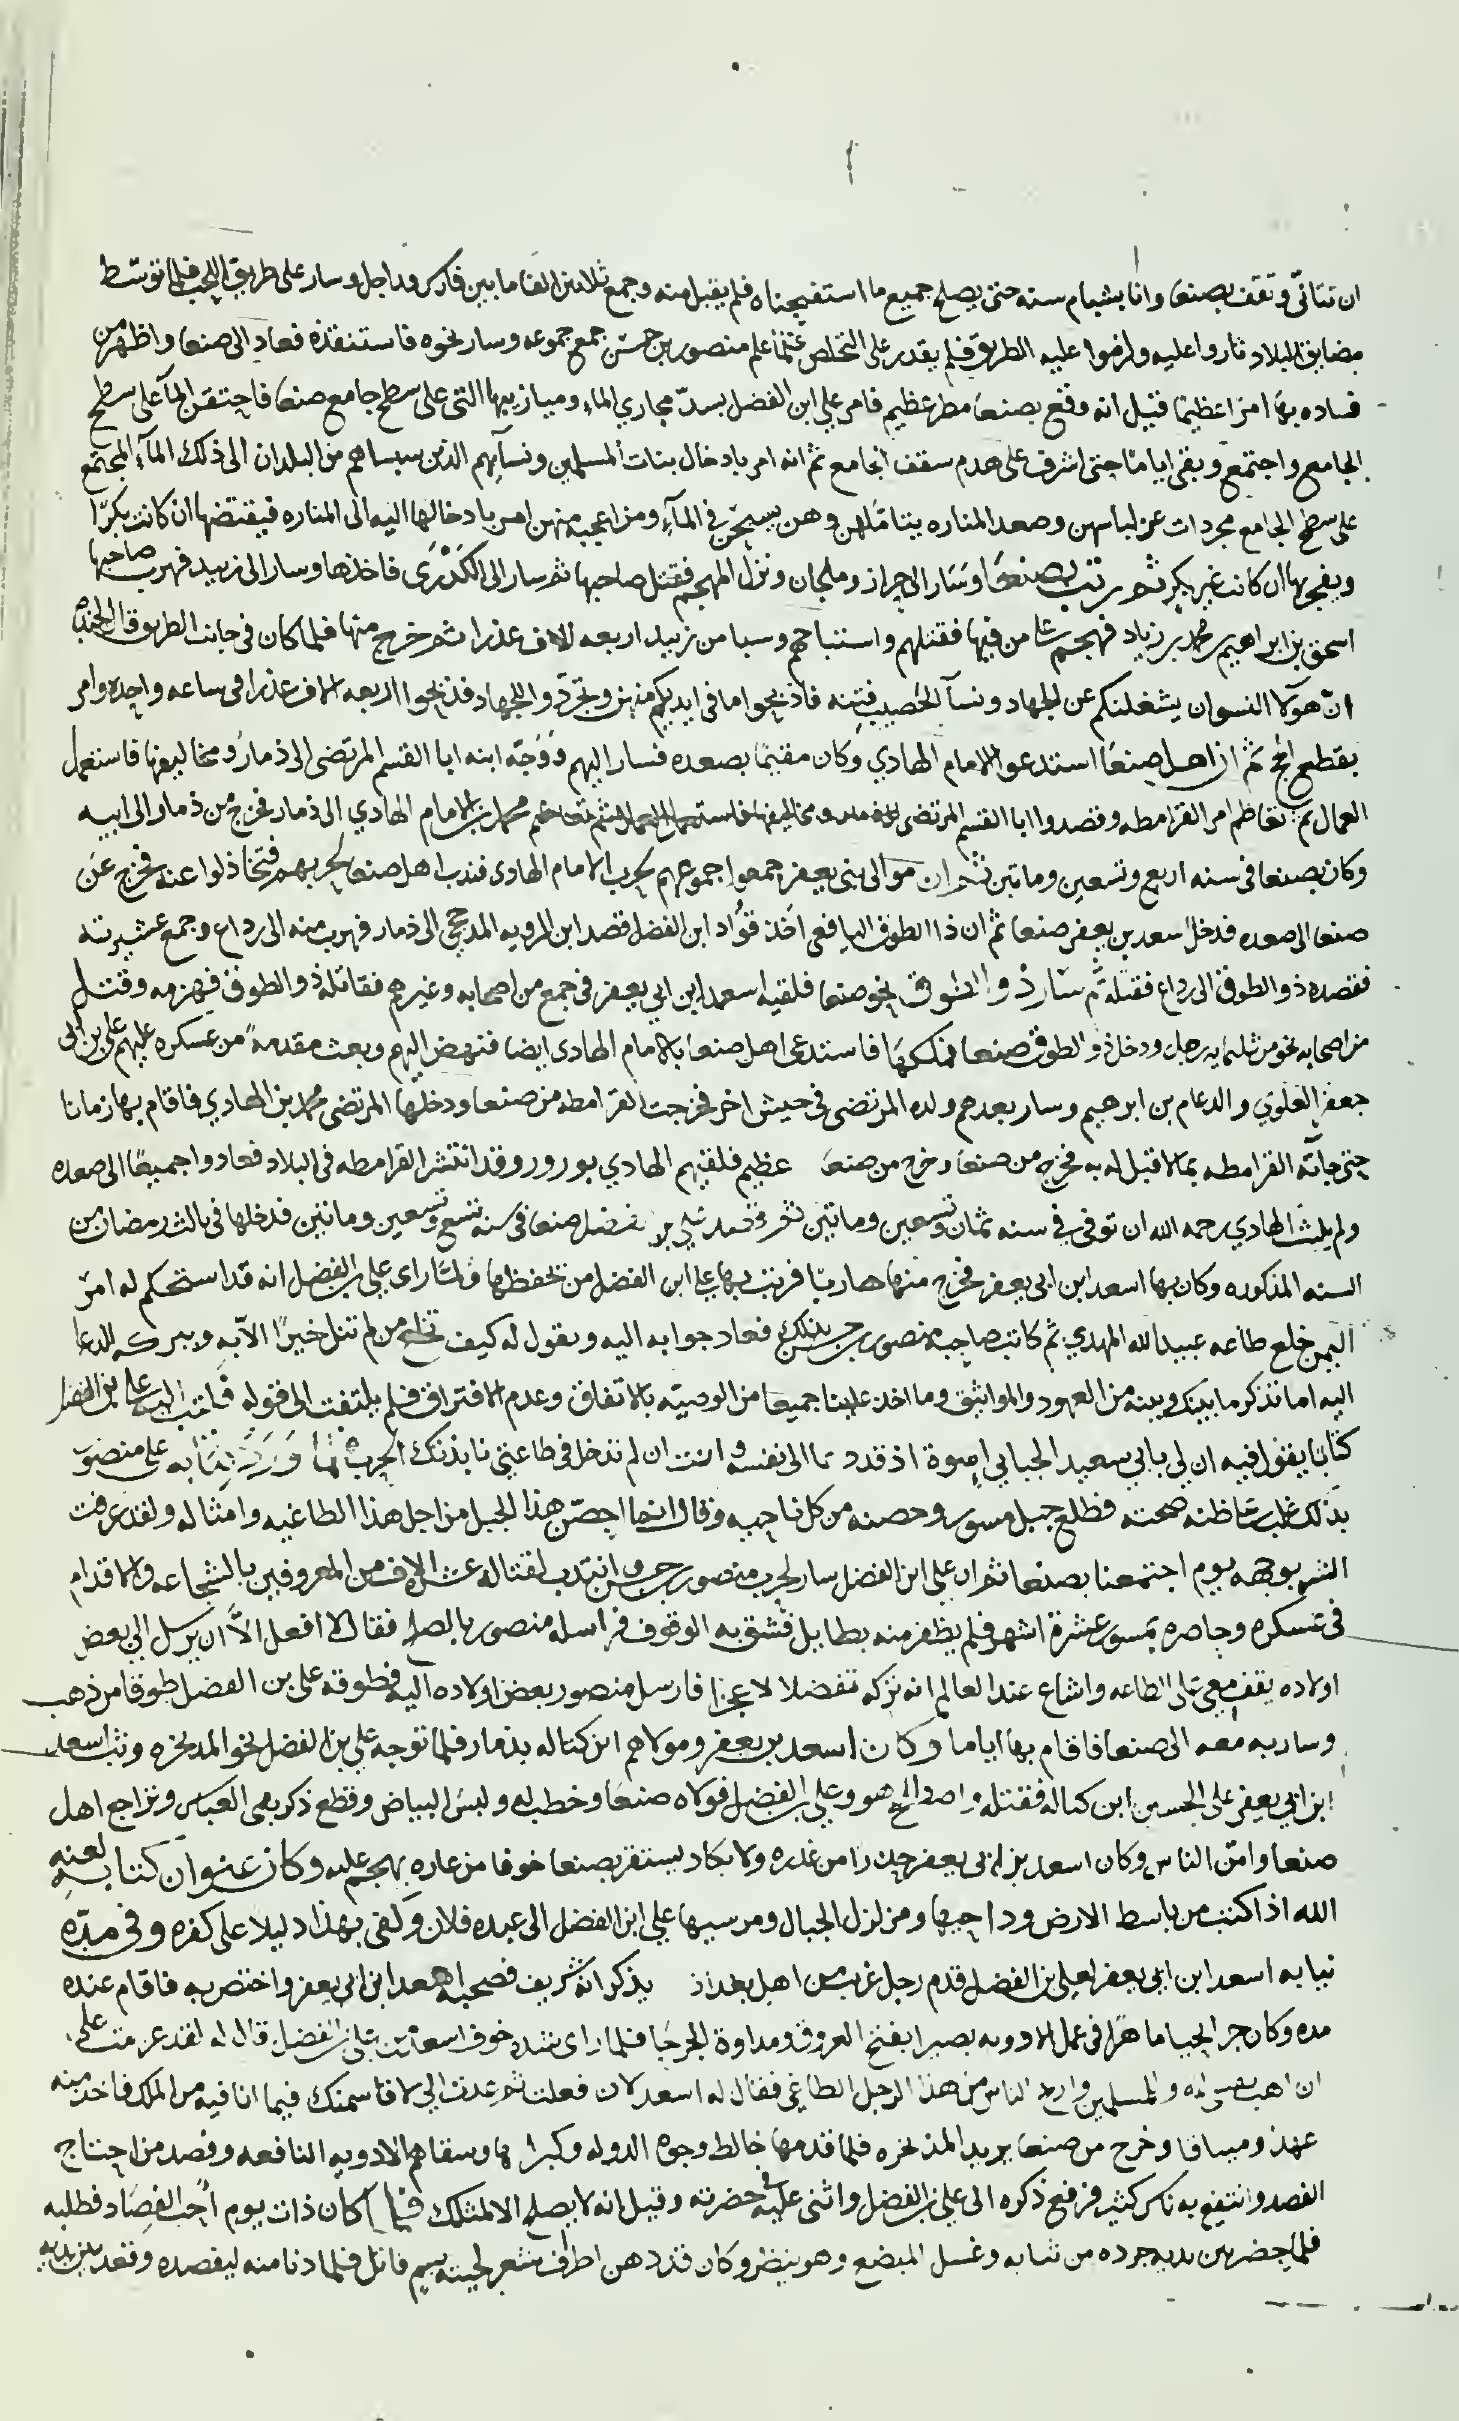 ان تتانّى وتقف بصنعا وانا بشبام سنه حتى يصلح جميع ما استفتحناه فلم يقبل منه وجمع ثلاثين الفا ما بين فارس وراجل وسار على طريق فلما توسّط
مضايق البلاد ثاروا عليه ولزموا عليه الطريق فلم يقدر على التخلص علم منصور بن حسن جمع جموعه وسار نحوه فاستنقذه فعاد الى صنعا واظهر من
فساده بها امرا عظيما قيل انه وقع بصنعا مطر عظيم فامر علي ابن الفضل بسدّ مجاري الماء وميازيبها التى على سطح جامع صنعا فاحتقن المآ على سطح
الجامع واجتمع وبقى اياما حتى اشرف على هدم سقف الجامع ثم انه امر بادخال بنات المسلمين ونسآيهم الذين سباهم من البلدان الى ذلك المآء المجتمع
على سطح الجامع مجردات عن لباسهن وصعد المناره يتاملهن وهن يسبحن في المآء ومن اعجبه منهن امر بادخالها اليه الى المناره فيقتضها ان كانت بكرًا
ويفجر بها ان كانت غير بكر ثم رتب بصنعا وسار الى حراز وملحان ونزل المهجم فقتل صاحبها ثم سار الى الكدرى فاخذها وسار الى زبيد فهرب صاحبها
اسحق بن ابراهيم بن محمد بن زياد فهجم على من فيها فقتلهم واستباحهم وسبا من زبيد اربعه الاف عذرا ثم خرج منها فلما كان في جانب الطريق قال لجنده
انّ هولآ النسوان يشغلنكم عن الجهاد ونسآ الحصيب فتنه فاذبحوا ما في ايديكم منهن وتجردّوا للجهاد فذبحوا اربعه الاف عذرا في ساعه واحده وامر
بقطع الحج ثم ان اهل صنعا استدعوا الامام الهادي وكان مقيما بصعده فسار اليهم ووجّه ابنه ابا القسم المرتضى الى ذمار ومخاليفها فاستعمل
العمال ثم تعاظم امر القرامطه وقصدوا ابا القسم المرتضى محمد بن الامام الهادي الى ذمار فخرج من ذمار الى ابيه
وكان بصنعا في سنه اربع وتسعين وماتين ثم ان موالى بني يعفر جمعوا جموعهم لحرب الامام الهادى فندب اهل صنعا لحربهم فتخاذلوا عنه فخرج عن
صنعا الى صعده فدخل اسعد بن يعفر صنعا ثم ان ذا الطوق اليافعي احد قوّاد ابن الفضل قصد ابن الرويه المدحجي الى ذمار فهرب منه الى رداع وجمع عشيرته
فقصده ذو الطوق الى رداع فقتله ثم سار ذو الطوق نحو صنعا فلقيه اسعد ابن ابي يعفر في جمع من اصحابه وغيرهم فقاتله ذو الطوق فهزمه وقتل
من اصحابه نحو من ثلثمايه رجل ودخل ذو الطوق صنعا فملكها فاستدعى اهل صنعا بالامام الهادى ايضا فنهض اليهم وبعث مقدمة من عسكره عليهم علي بن ابي
جعفر العلوي والدعام بن ابرهيم وسار بعدهم ولده المرتضى في جيش اخر فخرجت القرامطه من صنعا ودخلها المرتضى محمد بن الهادي فاقام بها زمانا
حتى جآته القرامطه بما لا قبل له به فخرج من صنعا وخرج من صنعا عظيم فلقيهم الهادي بورور وقد انتشر القرامطه في البلاد فعادوا جميعا الى صعده
ولم يلبث الهادي رحمه الله ان توفي في سنه ثمان وتسعين وماتين ثم قصد علي بن الفضل صنعا في سنه تسع وتسعين وماتين فدخلها في ثالث رمضان من
السنه المذكوره وكان بها اسعد ابن ابى يعفر فخرج منها هاربا فرتب بها علي ابن الفضل من يحفظها ولما راى علي بن الفضل انه قد استحكم له امر
اليمن خلع طاعه عبيد الله المهدي ثم كاتب صاحبه منصور بن حسن بذلك فعاد جوابه اليه ويقول له كيف تخلع من لم تنل خيرًا الا به وببركه الدعا
اليه اما تذكر ما بينك وبينه من العهود والمواثيق وما اخذ علينا جميعا من الوصيّه بالاتفاق وعدم الافتراق فلم يلتفت الى قوله فكتب اليه علي بن الفضل
كتابا يقول فيه ان لي بابي سعيد الجبابي اسوة اذ قد دعا الى نفسه وانت ان لم تدخل في طاعتي نابذتك الحرب فلما ورد كتابه على منصور
بذلك غلب على ظنه صحته فطلع جبل مسور وحصنه من كل ناحيه وقال انما احصّن هذا الجبل من اجل هذا الطاغيه وامثاله ولقد عرفت
الشر بوجهه يوم اجتمعنا بصنعا ثم ان علي ابن الفضل سار لحرب منصور بن حسن وانتدب لقتاله عشرة الاف من المعروفين بالشجاعه والاقدام
في عسكره وحاصره بمسور عشرة اشهر فلم يظفر منه بطايل فشق به الوقوف فراسله منصور بالصلح فقال لا افعل الاّ ان يرسل الي بعض
اولاده يقف معي على الطاعه واشاع عند العالم انه تركه تفضلا لا عجزا فارسل منصور بعض اولاده اليه فطوقه علي بن الفضل طوقا من ذهب
وسار به معه الى صنعا فاقام بها اياما وكان اسعد بن يعفر ومولاهم ابن كباله بذمار فلما توجه علي بن الفضل نحو المديخره وثب اسعد
ابن ابي يعفر على الحسين ابن كباله فقتله واصطلح هو وعلي بن الفضل فولاه صنعا وخطب له ولبس البياض وقطع ذكر بني العباس وتراجع اهل
صنعا وامن الناس وكان اسعد بن ابي يعفر حذرا من غدره ولا يكاد يستقر بصنعا خوفا من غاره يهجم عليه وكان عنوان كتابه لعنه
الله اذا كتب من باسط الارض وداحيها ومزلزل الجبال ومرسيها علي ابن الفضل الى عبده فلان وكفى بهذا دليلا على كفره وفي مدّه
نيابه اسعد ابن ابي يعفر لعلي بن الفضل قدم رجل غريب من اهل بغداد يذكر انه شريف فصحبه اسعد ابن ابي يعفر واختص به فاقام عنده
مده وكان جرايحيا ماهرًا في عمل الادويه بصيرا بفتح العروق ومداوة الجرحا فلما راى شده خوف اسعد من علي بن الفضل قال له لقد عزمت على
ان اهب نفسي لله وللمسلمين واريح الناس من هذا الرجل الطاغي فقال له اسعد لان فعلت ثم عدت الي لاقاسمنك فيما انا فيه من الملك فاخذ منه
عهدا وميثاقا وخرج من صنعا يريد المذيخره فلما قدمها خالط وجوه الدوله وكبراها وسقاهم الادويه النافعه وفصد من احتاج
الفصد وانتفع به ناس كثير فرفع ذكره الى علي بن الفضل واثنى عليه في حضرته وقيل انه لا يصلح الا لمثلك فلما كان ذات يوم احب الفصاد فطلبه
فلما حضر بين يديه جرده من ثيابه وغسل المبضع وهو ينظر وكان قد دهن اطراف شعر لحيته بسم قاتل فلما دنا منه ليفصده وقعد بين يديه